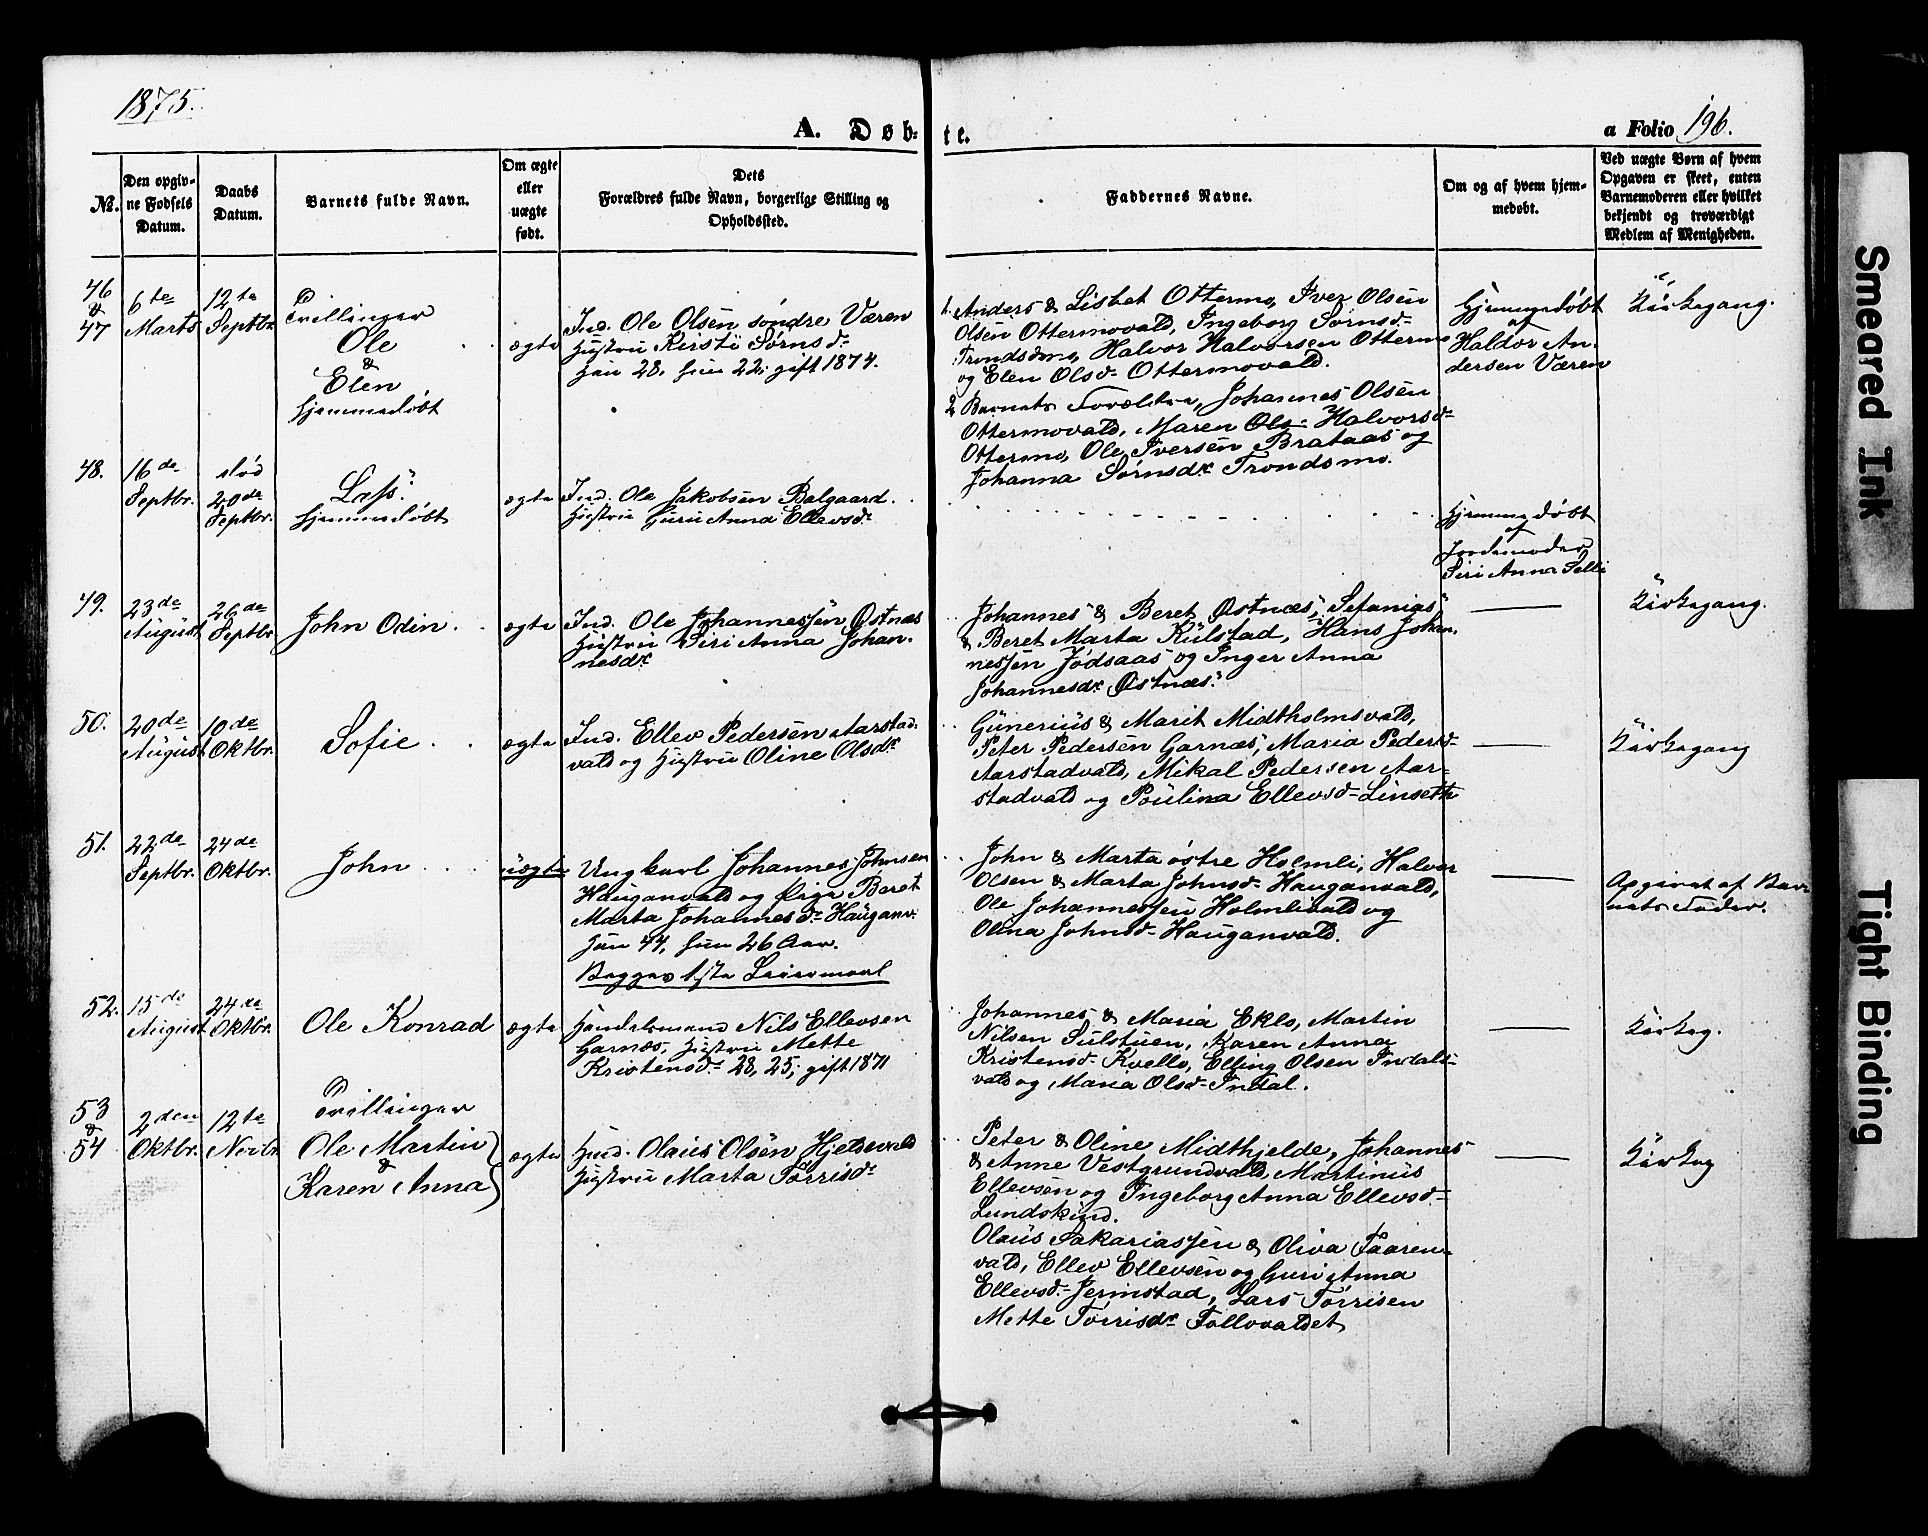 1875.
A. Døb-
te.
a Folio 196.
№.
Den opgiv-
ne Fødsels
Datum.
Daabs
Datum.
Barnets fulde Navn.
Om ægte
eller
uægte
født.
Dets
Forældres fulde Navn, borgerlige Stilling og
Opholdssted.
Faddernes Navne.
Om og af hvem hjem-
medøbt.
Ved uægte Børn af hvem
Opgaven er skeet, enten
Barnemoderen eller hvilket
bekjendt og troværdigt
Medlem af Menigheden.
46
&
47
6te
Marts
12te
Septbr
Tvillinger
Ole
&
Elen
hjemmedøbt
ægte
Ind. Ole Olsen søndre Væren
Hustru Kirsti Sørnsd.
han 28, hun 22, gift 1874.
1. Anders & Lisbet Ottermo, Iver Olsen
Olsen Ottermovald, Ingeborg Sørnsd.
Trondsmo, Halvor Halvorsen Ottermo
og Elen Olsd. Ottermovald.
2 Barnets Forældre, Johannes Olsen
Ottermovald, Maren Ols. Halvorsd.
Ottermo, Ole Iversen Brataas og
Johanna Sørnsdr. Trondsmo.
Hjemmedøbt
af
Haldor An-
dersen Væren
Kirkegang.
48.
16de
Septbr.
død
20de
Septbr.
Lass.
hjemmedøbt
ægte
Ind. Ole Jakobsen Balgaard.
Hustru Guru Anna Ellevsd.
Hjemmedøbt
af
Jordemoder
Siri Anna Selli
49.
23de
August
26de
Septbr
John Odin.
ægte
Ind. Ole Johannessen Østnæs
Hustru Siri Anna Johan-
nesdr.
Johannes & Beret Østnæs, Sefanias
& Beret Marta Külstad, Hans Johan-
nessen Jødsaas og Inger Anna
Johannesdr. Østnæs.
Kirkegang.
50.
20de
August
10de
Oktbr.
Sofie.
ægte
Ind. Ellev Pedersen Aarstad-
vald og Hustru Oline Olsdr.
Gunerius & Marit Midtholmsvald,
Peter Pedersen Garnæs, Maria Pedersd.
Aarstadvald, Mikal Pedersen Aar-
stadvald og Poulina Ellevsd. Linseth
Kirkegang
51.
22de
Septbr.
24de
Oktbr.
John
uægte
Ungkarl Johannes Johnsen
Hauganvald og Pige Beret
Marta Johannesd. Hauganv.
han 44, hun 26 Aar.
Begges 1ste Leiermaal
John & Marta østre Holmli, Halvor
Olsen & Marta Johnsd. Hauganvald,
Ole Johannessen Holmlivald og
Olina Johnsd. Hauganvald.
Opgivet af Bar-
nets Fader.
52.
15de
August
24de
Oktbr.
Ole Konrad
ægte
Handelsmand Nils Ellevsen
Garnæs, Hustru Mette
Kristensd. 28, 25, gift 1871
Johannes & Maria Eklo, Martin
Nilsen Sulstuen, Karen Anna
Kristensd. Kvello, Elling Olsen Indals-
vald og Maria Olsd. Indal.
Kirkeg.
53
&
54
2den
Oktbr.
12te
Novbr
Tvillinger
Ole Martin
&
Karen Anna
ægte
Husd. Olaus Olsen Hjeldevald
Hustru Marta Tørrisdr.
Peter & Oline Midthjelde, Johannes
& Anne Vestgrundvald, Martinus
Ellevsen og Ingeborg Anna Ellevsd.
Lundskind.
Olaus Sakariassen & Oliva Faaren-
vald, Ellev Ellevsen og Guri Anna
Ellevsd. Jermstad, Lars Tørrisen
Mette Tørrisdr. Follovaldet
Kirkeg
Smeared Ink
Tight Binding